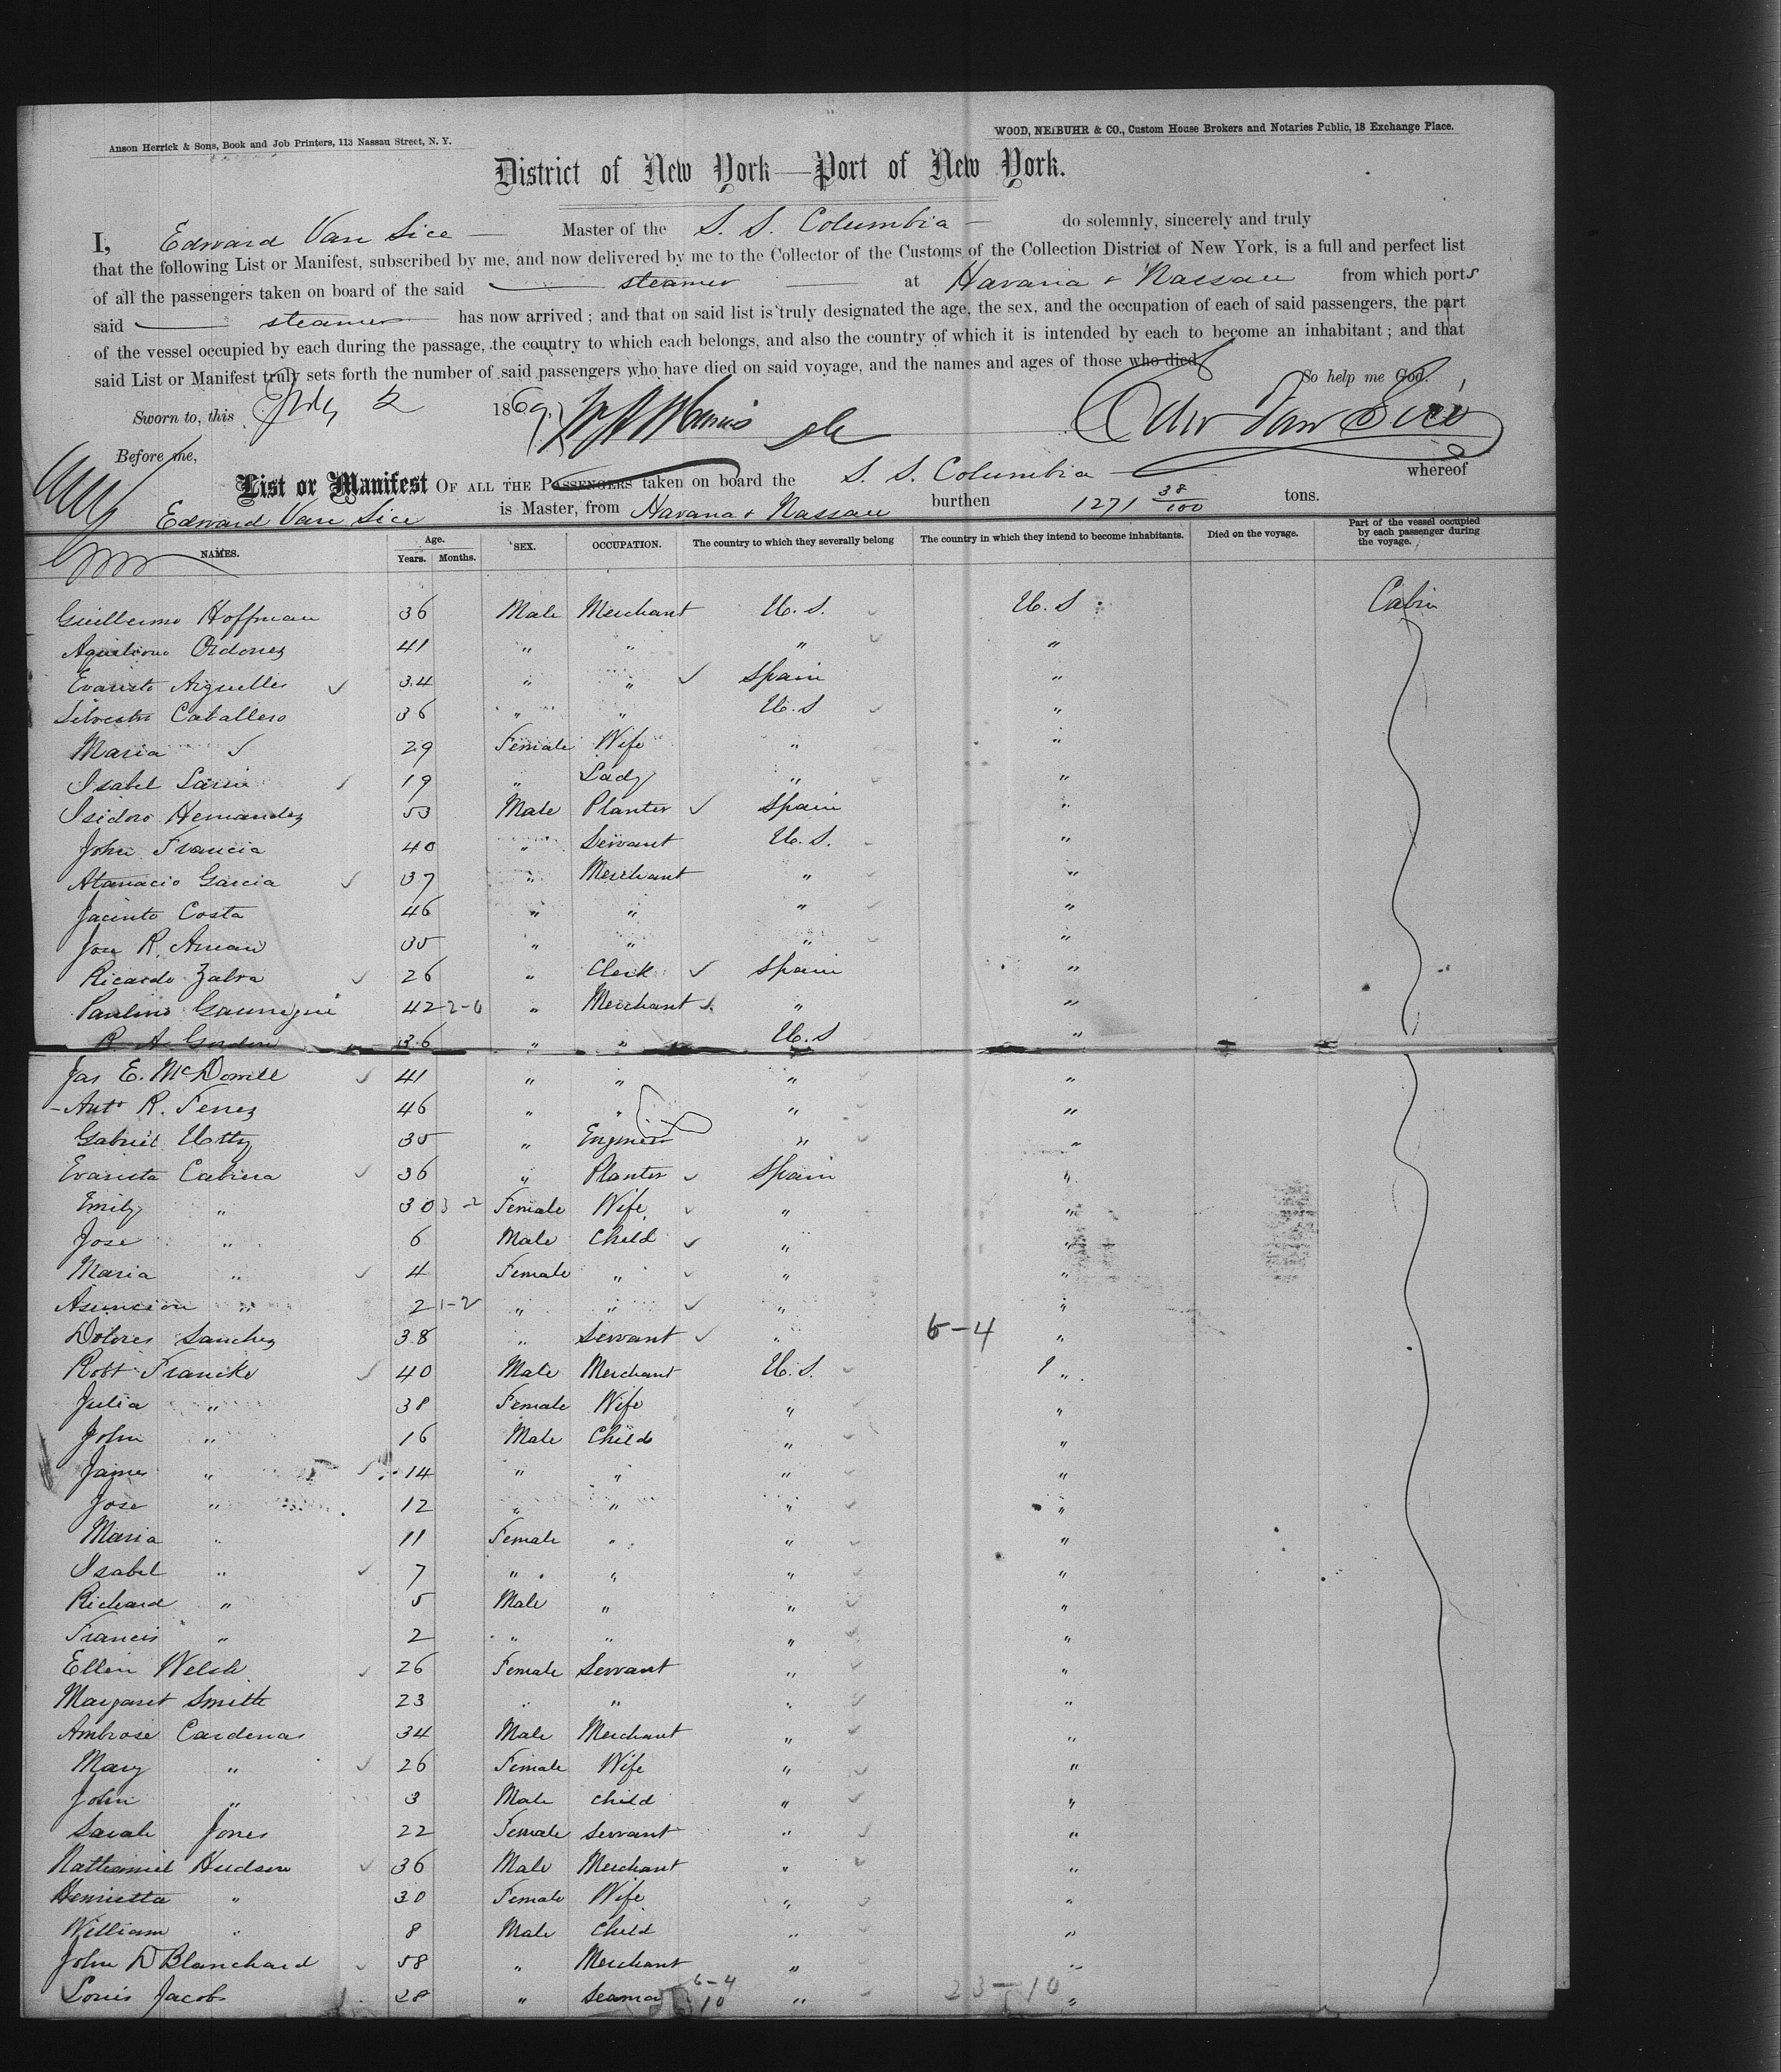 Anson Herrick & Sons, Book and Job Printers, 113 Nassau Street, N. Y.
WOOD, NEIBUHR & CO., Custom House Brokers and Notaries Public, 18 Exchange Place.
District of New York—Port of New York.
I, Edward Van Sice Master of the S. S. Columbia do solemnly, sincerely and truly
that the following List or Manifest, subscribed by me, and now delivered by me to the Collector of the Customs of the Collection District of New York, is a full and perfect list
of all the passengers taken on board of the said steamer at Havana & Nassau from which ports
said steamer has now arrived; and that on said list is truly designated the age, the sex, and the occupation of each of said passengers, the part
of the vessel occupied by each during the passage, the country to which each belongs, and also the country of which it is intended by each to become an inhabitant; and that
said List or Manifest truly sets forth the number of said passengers who have died on said voyage, and the names and ages of those who died.
So help me God.
Sworn to, this July 2 1869,
Edw Van Sice
Before me,
List or Manifest OF ALL THE PASSENGERS taken on board the S. S. Columbia whereof
Edward Van Sice is Master, from Havana & Nassau burthen 1271 38/100 tons.
NAMES. Age. Years. Months. SEX. OCCUPATION. The country to which they severally belong The country in which they intend to become inhabitants. Died on the voyage. Part of the vessel occupied by each passenger during the voyage.
Guillermo Hoffman 36 Male Merchant U. S. U. S. Cabin
Ordonez 41 " " " "
Evaristo Arguelles 34 " " Spain "
Silvestre Caballero 36 " " U. S "
Maria 29 Female Wife " "
Isabel 19 " Lady " "
Isidoro Hernandez 53 Male Planter Spain "
John Francia 40 " Servant U. S. "
Atanacio Garcia 37 " Merchant " "
Jacinto Costa 46 " " " "
Jose R. 35 " " " "
Ricardo Zalva 26 " Clerk Spain "
Paulino 42 2-0 " Merchant " "
R. A. Gordon 36 " " U. S "
Jas E. McDowell 41 " " " "
Anto R. Ferrez 46 " " " "
Gabriel 35 " Engineer " "
Evarista Cabrera 36 " Planter Spain "
Emily " 30 3-2 Female Wife " "
Jose " 6 Male Child " "
Maria " 4 Female " " "
Asuncion " 2 1-2 " " " "
Dolores Sanchez 38 " Servant " 5-4 "
Robt Francke 40 Male Merchant U. S. "
Julia " 38 Female Wife " "
John " 16 Male Child " "
James " 14 " " " "
Jose " 12 " " " "
Maria " 11 Female " " "
Isabel " 7 " " " "
Richard " 5 Male " " "
Francis " 2 " " " "
Ellen Welsh 26 Female Servant " "
Margaret Smith 23 " " " "
Ambrose Cardenas 34 Male Merchant " "
Mary " 26 Female Wife " "
John " 3 Male child " "
Sarah Jones 22 Female Servant " "
Nathaniel Hudson 36 Male Merchant " "
Henrietta " 30 Female Wife " "
William " 8 Male Child " "
John D Blanchard 58 " Merchant " "
Louis Jacobs 28 " Seaman 6-4 10 " 23-10 "